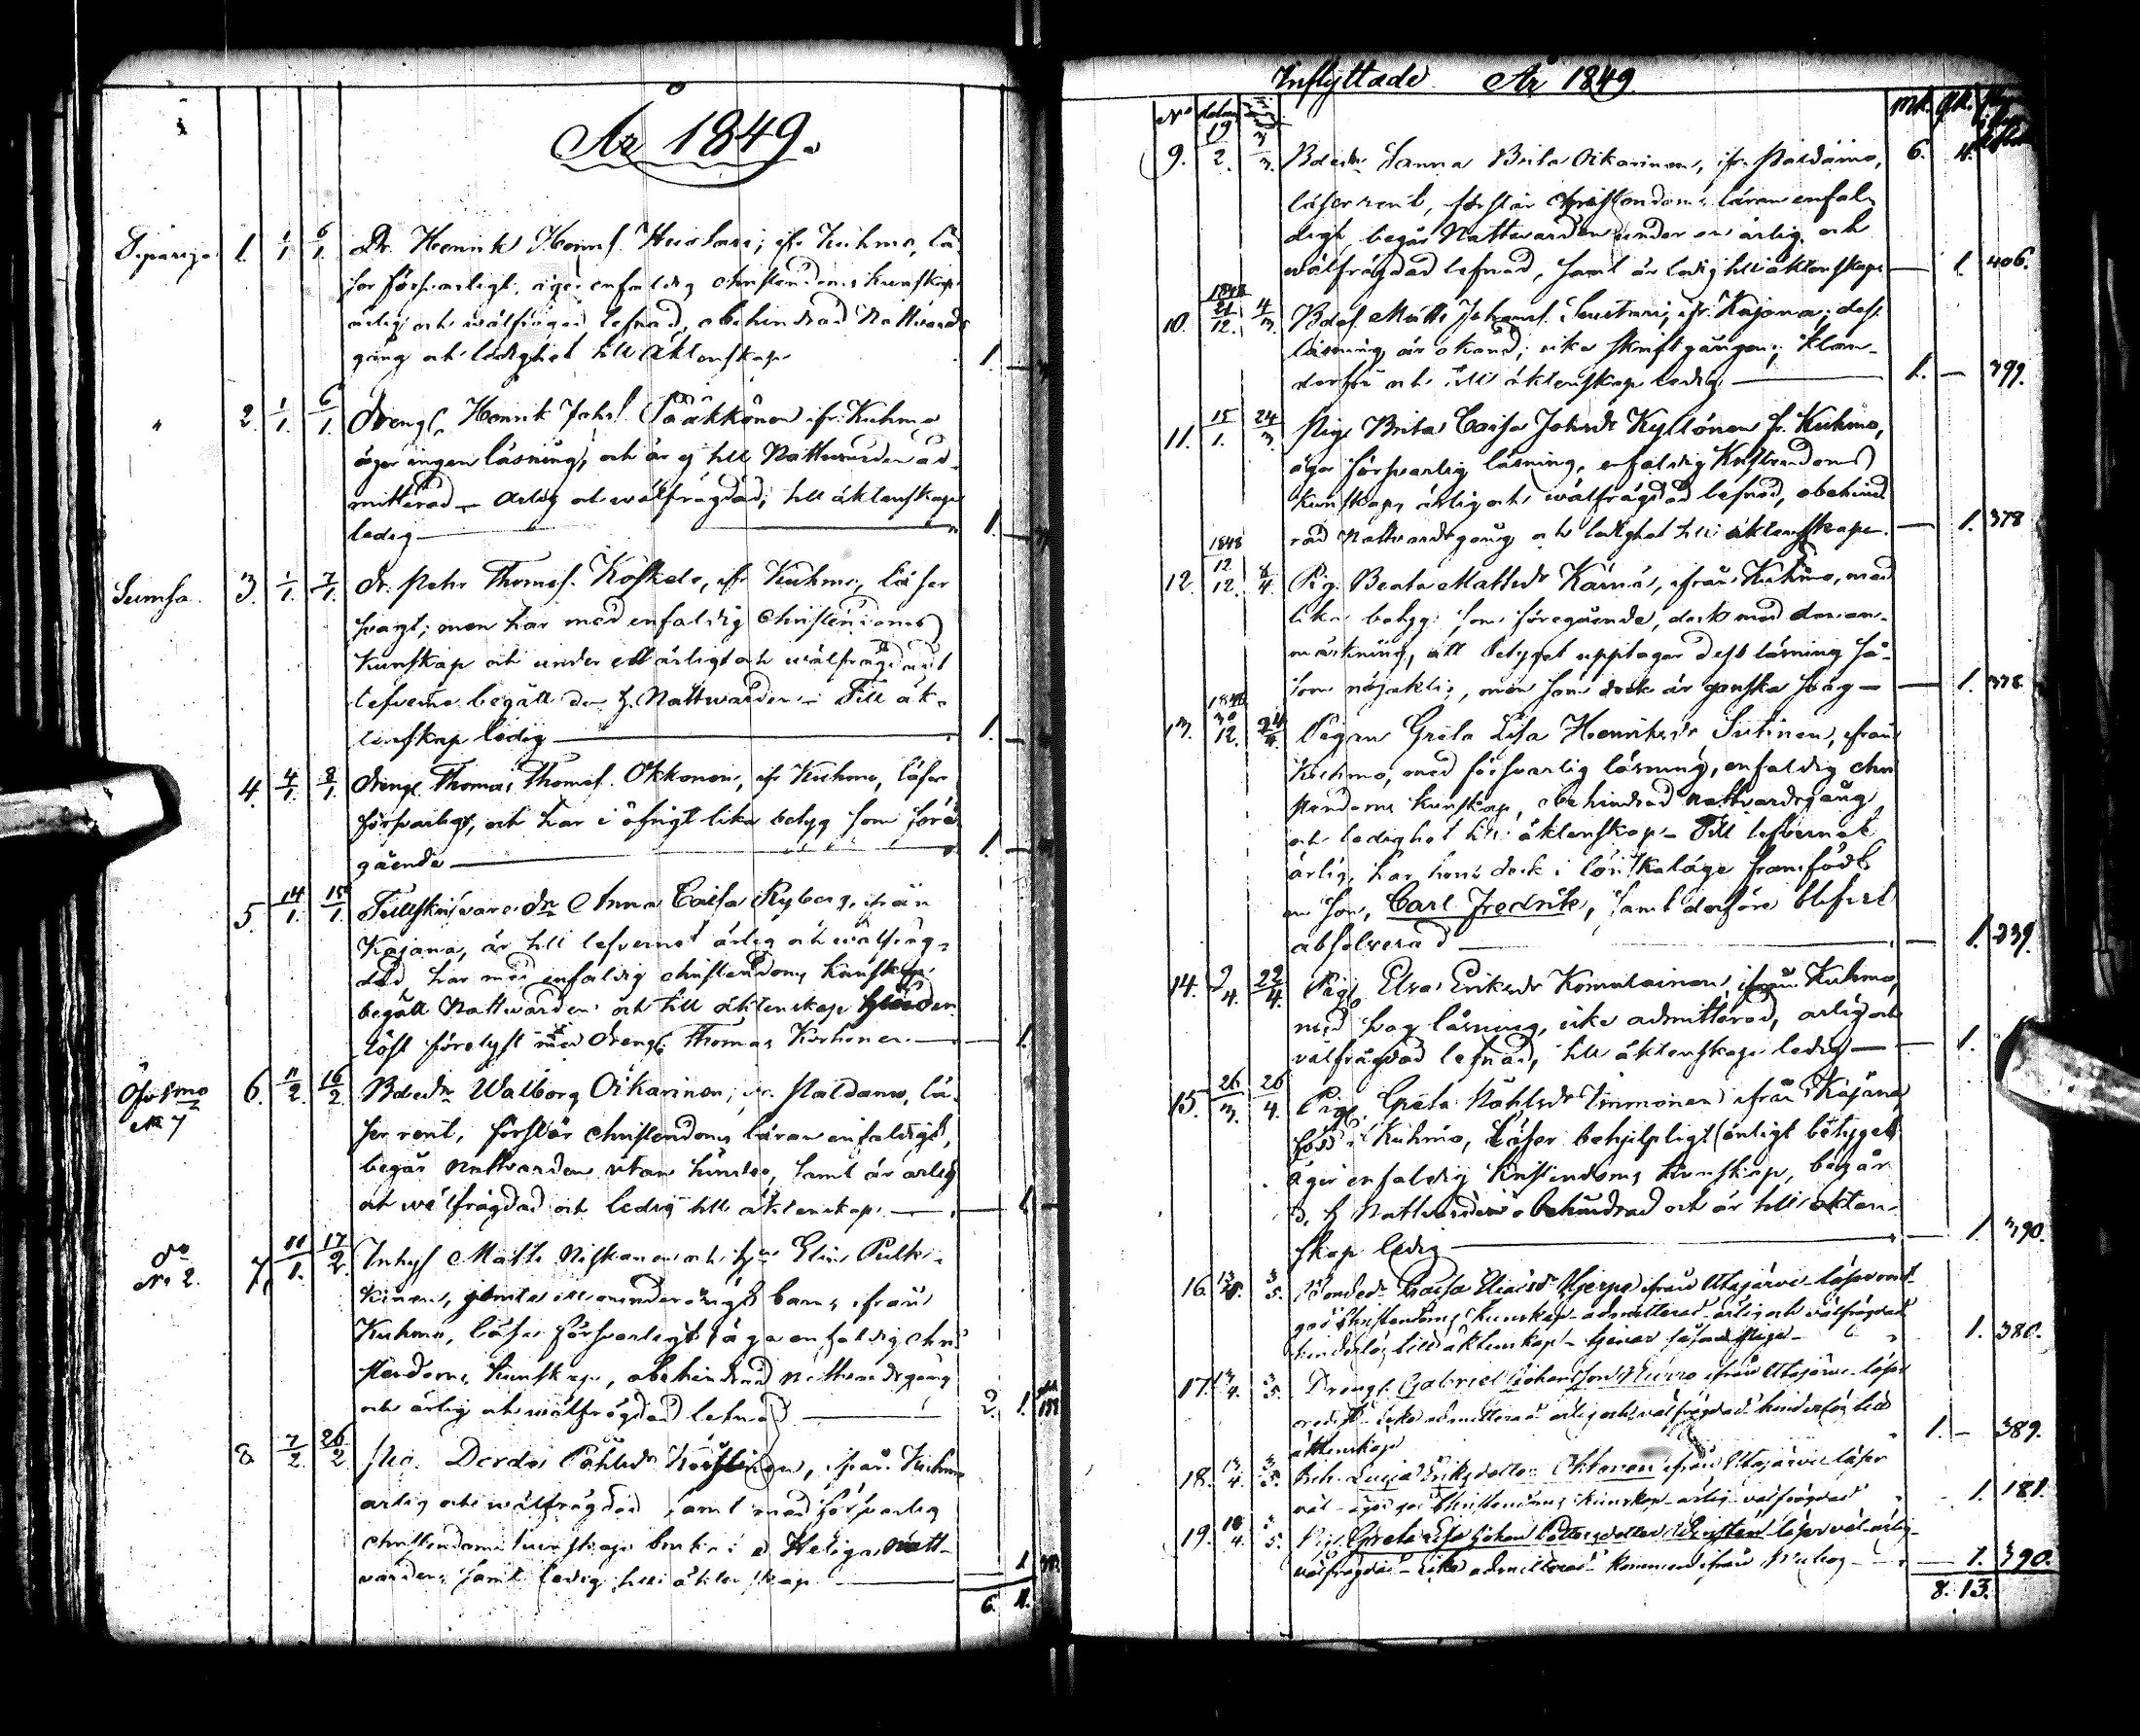 År 1849.
1. 1/1 6/1 Dr. Henrik Henrs. Huotari, ifr. Kuhmo, lä-
ser försvarligt, äger enfaldig christendoms kunskap
ärlig och wälfrägdad lefnad, obehindrad Nattvards
gång och ledighet till äktenskap 1.
" 2. 1/1 6/1 Dreng. Henrik Johs. Pääkkönen ifr. Kuhmo
äger ingen läsning, och är ej till Nattvarden ad-
mitterad – ärlig och wälfrägdad, till äktenskap
ledig 1.
3. 1/1 7/1 Dr. Pehr Thomas. Koskelo, ifr. Kuhmo, läser
svagt; men har med enfaldig Christendoms
Kunskap och under ett ärligt och wälfrägdadt
lefverne begått den H. Nattvarden – Till äk-
tenskap ledig 1.
4. 4/1 8/1 Dreng. Thomas Thomas. Okkonen, ifr Kuhmo, läser
försvarligt, och har i öfrigt lika betyg som före
gående 1.
5. 14/1 15/1 dn Anna Caisa Ryberg, ifrån
Kajana, är till lefvernet ärlig och wälfräg-
dad, har med enfaldig christendoms kunskap
begått Nattvarden och till äktenskap
löst förelyst med Drengen Thomas Korhonen 1.
No 7 6. 11/2 16/2 Walborg Oikarinen, ifr. Paldamo, lä-
ser rent, förstår christendoms läran enfaldigt,
begår Nattvarden utan hinder, samt är ärlig
och wälfrägdad och ledig till äktenskap 1.
do
No 2. 7. 1. 17/2 Inhys Matts Niskanen och h:u Elin Pulk-
kinen, jemte ett minderårigt barn, ifrån
Kuhmo, läsa försvarligt, äga enfaldig chri-
stendoms kunskap, obehindrad nattvardsgång
och ärlig och wälfrägdad lefnad 2. 1.
8. 7/2 26/2 Pig. Dordei Påhlsdr ifrån Kuhmo
ärlig och wälfrägdad samt med försvarlig
christendoms kunskap Heliga natt-
varden, samt ledig till äktenskap 1.
6. 4.
Inflyttade År 1849.
No
9. 19/2. 3/3. Sanna Brita Oikarinen, ifr. Paldamo, 6. 4.
läser rent, förstår Christendoms läran enfal-
digt, begår Nattvarden under en ärlig och
wälfrägdad lefnad, samt är ledig till äktenskap 1. 406.
10. 1848 21/12. 4/3. Matts Johans. ifr. Kajana; dess
läsning är okänd; lika skriftgången; klan-
derfri och till äktenskap ledig 1. — 399.
11. 15/1. 24/3 Pig. Brita Caisa Johsdr Kyllönen fr. Kuhmo,
äger försvarlig läsning, enfaldig Kristendoms
kunskap, ärlig och wälfrägdad lefnad, obehind
rad Nattvardsgång och ledighet till äktenskap 1. 378
12. 1848 12/12. 8/4. Pig. Beata Mattsdr Kärnä, ifrån Kuhmo, med
lika betyg som föregående, dock med den an-
märkning, att betyget upptager dess läsning så-
som nöjaktig, men som dock är ganska svag 1. 378
13. 30/12. 24/4. Pigan Greta Lisa Henriksdr Sutinen, ifrån
Kuhmo, med försvarlig läsning, enfaldig chri
stendoms kunskap, obehindrad nattvardsgång
och ledighet till äktenskap – Till lefvernet
ärlig, har hon dock i lönskaläge framfödt
en son, Carl Fredrik, samt derföre blifvit
absolverad 1. 239.
14. 2/4. 22/4. Pig. Elsa Eriksdr Komulainen, ifrån Kuhmo,
med svag läsning, icke admitterad, ärlig och
välfrägdad lefnad, till äktenskap ledig 1.
15. 26/3. 26/4. Pig. Greta Påhlsdr Immonen ifrån Kajana,
född i Kuhmo, läser behjelpligt (enligt betyget)
äger enfaldig Kristendoms kunskap, begår
d. H. Nattvarden obehindrad och är till äkten-
skap ledig 1. 390.
16. 3/5. Caisa Eliasdr Hjerpe ifrån Utajärvi läser rent
god Christendoms kunskap – admitterad – ärlig och välfrägdad
hinderlös till äktenskap 1. 380.
17. 13/4. 3/5. Dreng. Gabriel Johansson ifrån Utajärvi läser
icke admitterad ärlig och välfrägdad hinderlös till
äktenskap 1. – 389.
18. 13/4. 3/5. Lucia Eriksdotter Okkonen ifrån Utajärvi läser
väl – äger god Christendoms kunskap – ärlig välfrägdad 1. 181.
19. 10/4. 5. Pig. Greta Lisa Johan Pettersdotter läser väl ärlig
välfrägdad – icke admitterad – kommen ifrån 1. 390.
8. 13.